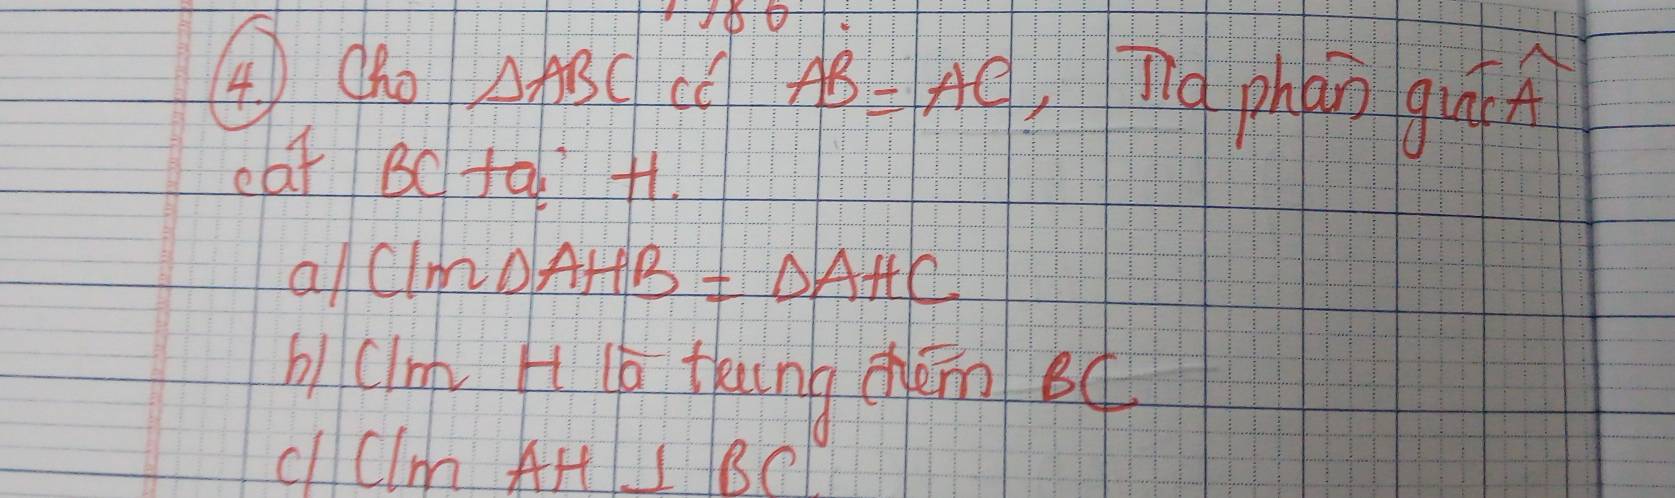 ④ Cho ΔABC có AB = AC, Tia phân giác Â
cắt BC tại H.
a/ C/m ΔAHB = ΔAHC
b/ C/m H là trung điểm BC
c/ C/m AH ⊥ BC